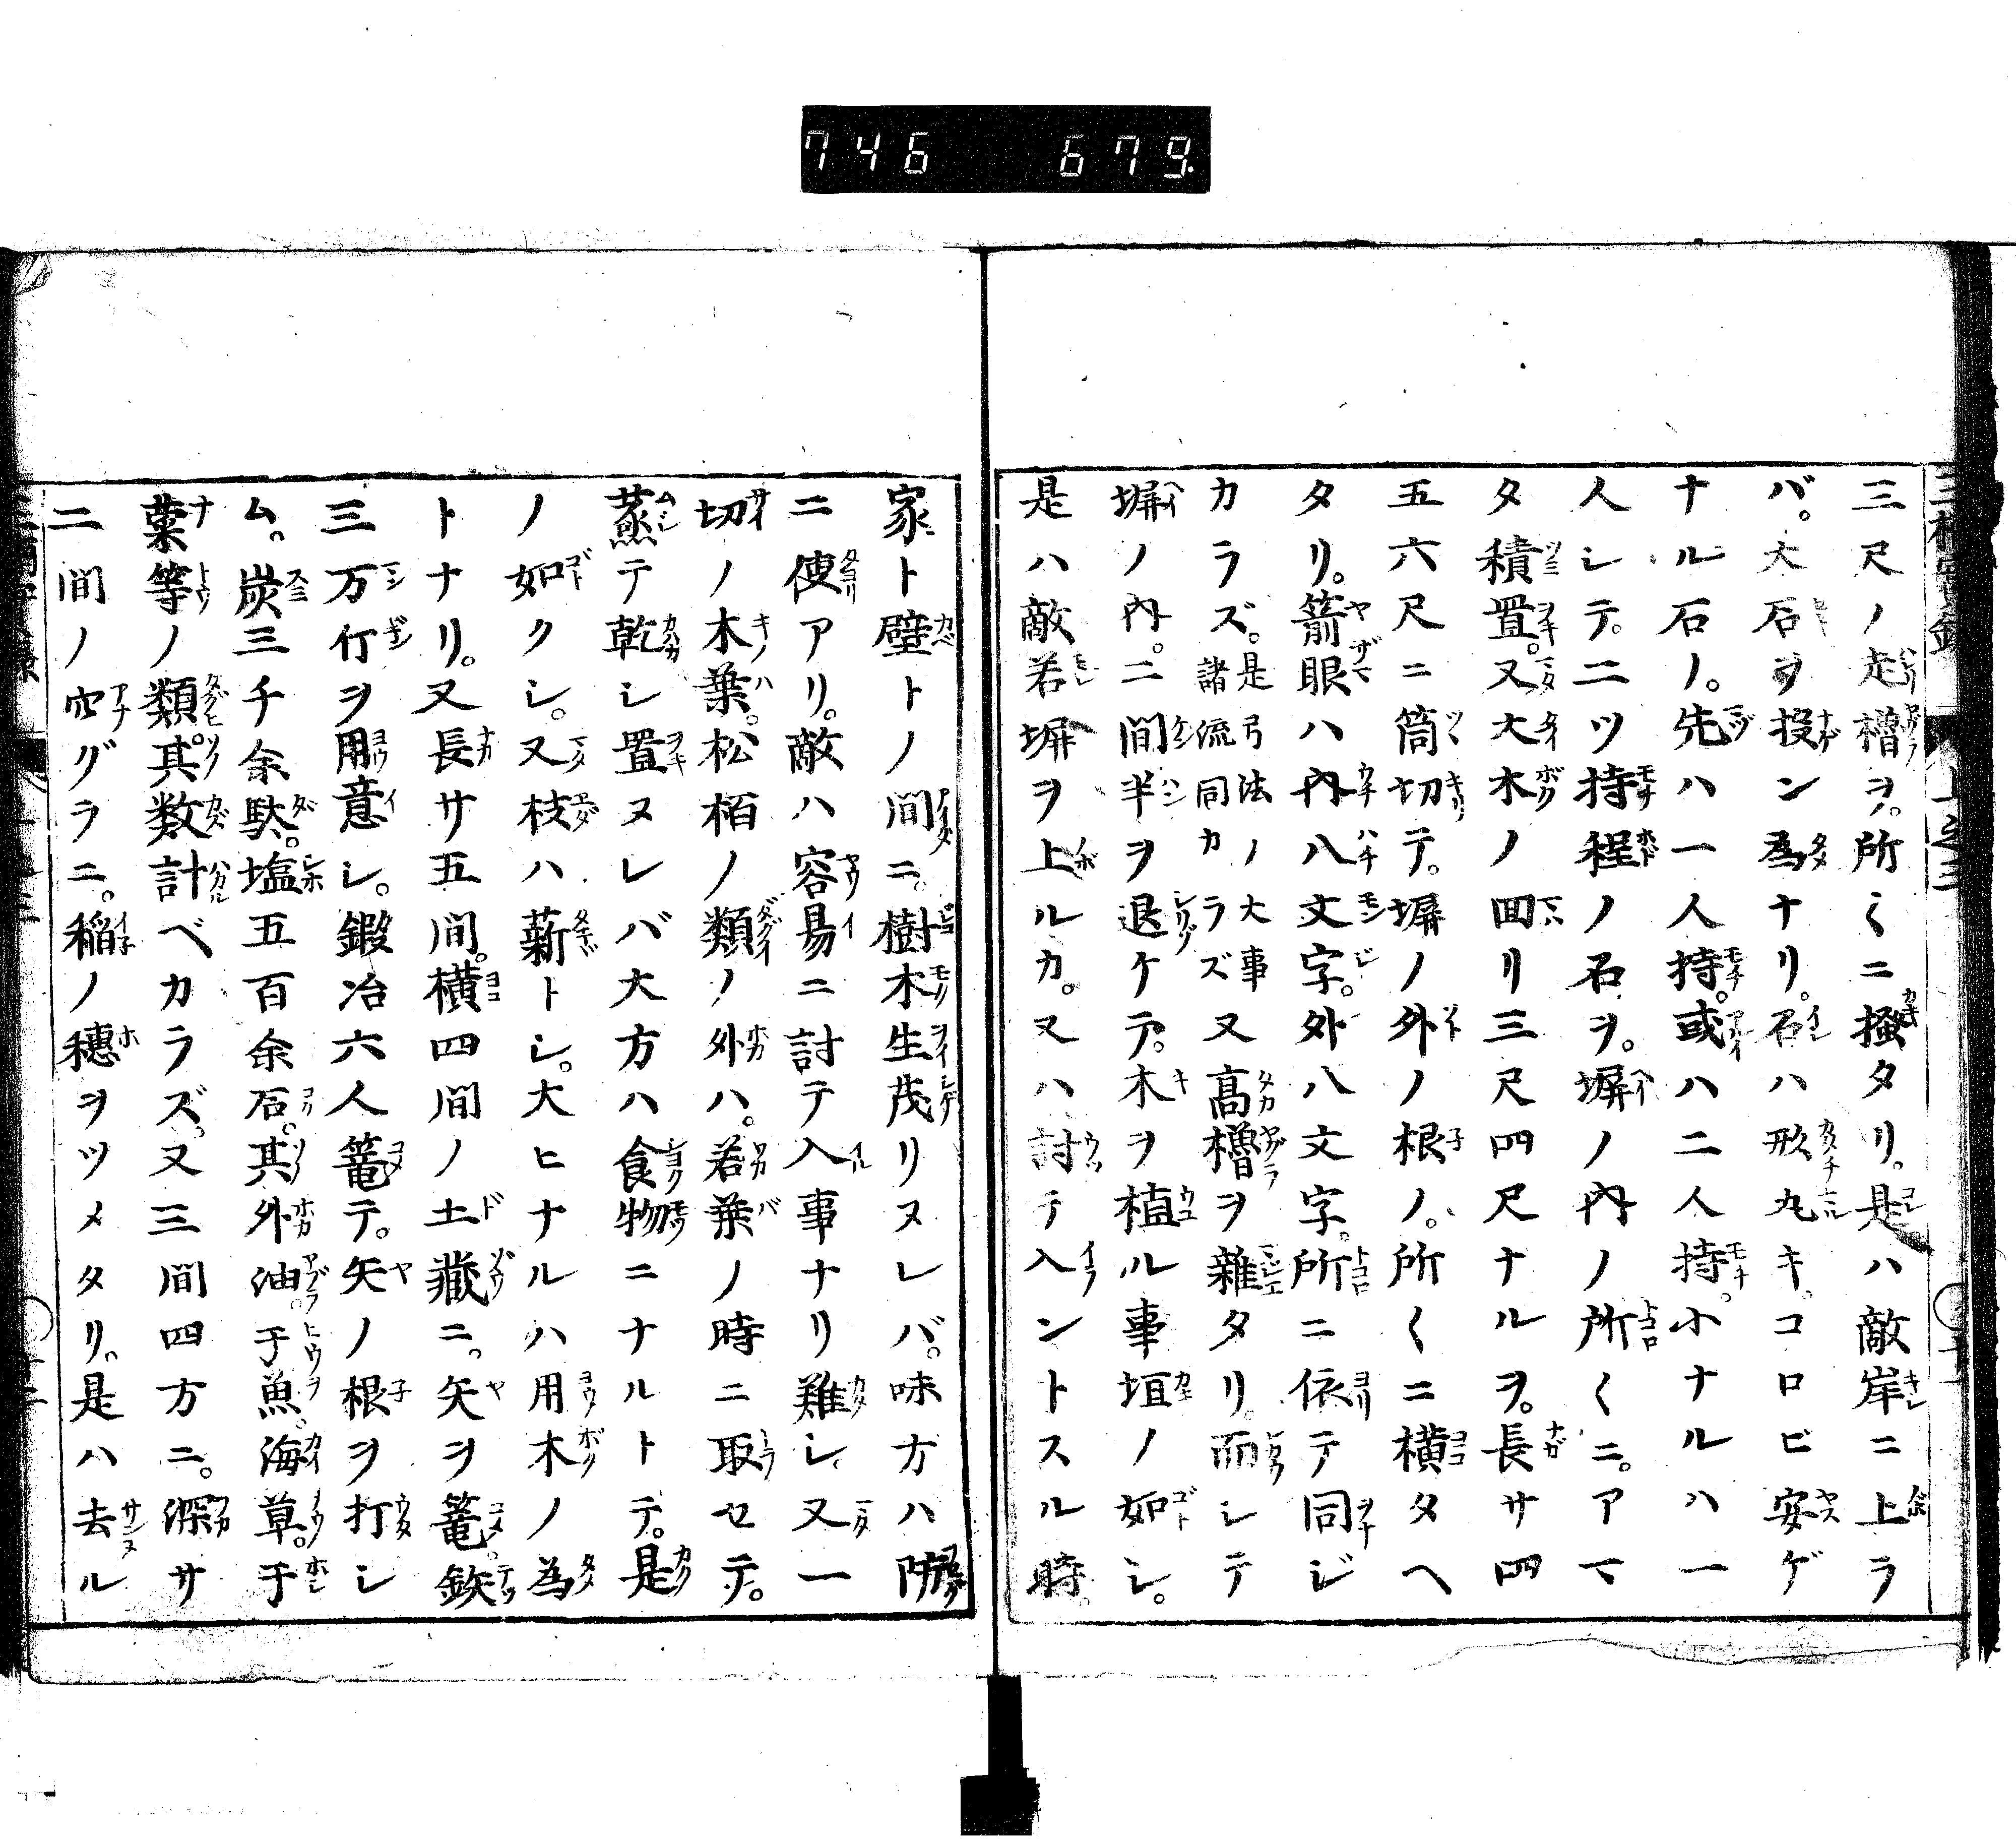 746 679.
三尺ノ走櫓ヲ。所〱ニ掻タリ。是ハ敵岸ニ上ラ
バ。大石ヲ投ン為ナリ。石ハ形丸キ。コロビ安ゲ
ナル石ノ。先ハ一人持。或ハ二人持。小ナルハ一
人シテ。二ツ持程ノ石ヲ。塀ノ内ノ所〱ニ。アマ
タ積置。又大木ノ囬リ三尺四尺ナルヲ。長サ四
五六尺ニ筒切テ。塀ノ外ノ根ノ。所〱ニ横タヘ
タリ。箭眼ハ内八文字。外八文字。所ニ依テ同ジ
カラズ。是弓法ノ大事諸流同カラズ又高櫓ヲ雜タリ。而シテ
塀ノ内。二間半ヲ退ケテ。木ヲ植ル事垣ノ如シ。
是ハ敵若塀ヲ上ルカ。又ハ討テ入ントスル時。
家ト壁トノ間ニ。樹木生茂リヌレバ。味方ハ防
ニ便アリ。敵ハ容易ニ討テ入事ナリ難シ。又一
切ノ木葉。松栢ノ類ノ外ハ。若葉ノ時ニ取セテ。
蒸テ乾シ置ヌレバ大方ハ食物ニナルトテ。是
ノ如クシ。又枝ハ薪トシ。大ヒナルハ用木ノ為
トナリ。又長サ五間。横四間ノ土蔵ニ。矢ヲ篭。鉄
三万行ヲ用意シ。鍛冶六人篭テ。矢ノ根ヲ打シ
ム。炭三千余駄。塩五百余石。其外油。干魚。海草。干
菓等ノ類。其数計ベカラズ。又三間四方ニ。深サ
二間ノ穴グラニ。稲ノ穂ヲツメタリ。是ハ去ル